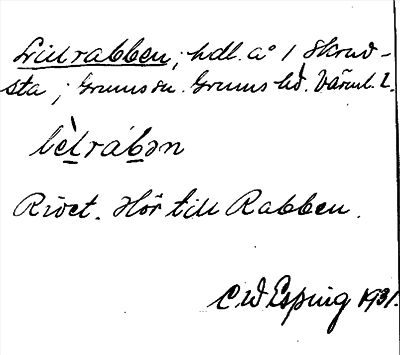 Lillrabben; hdl. a° 1 Skruv-
sta; Grums sn. Grums hd. Värml. l.
lèlrábən
Rivet. Hör till Rabben.
C W Esping 1931.